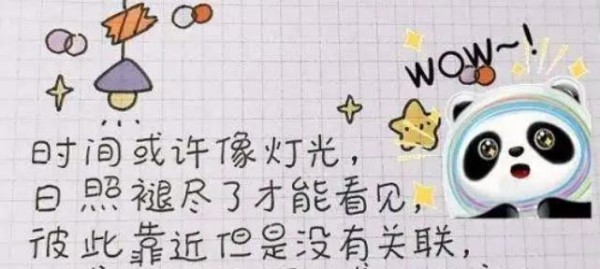 WOW~!
时间或许像灯光，
日照褪尽了才能看见，
彼此靠近但是没有关联，